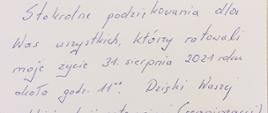 Stokrotne podziękowania dla
Was wszystkich, którzy ratowali
moje życie 31. sierpnia 2021 roku
około godz. 11⁰⁰. Dzięki Waszej
(reanimacji)